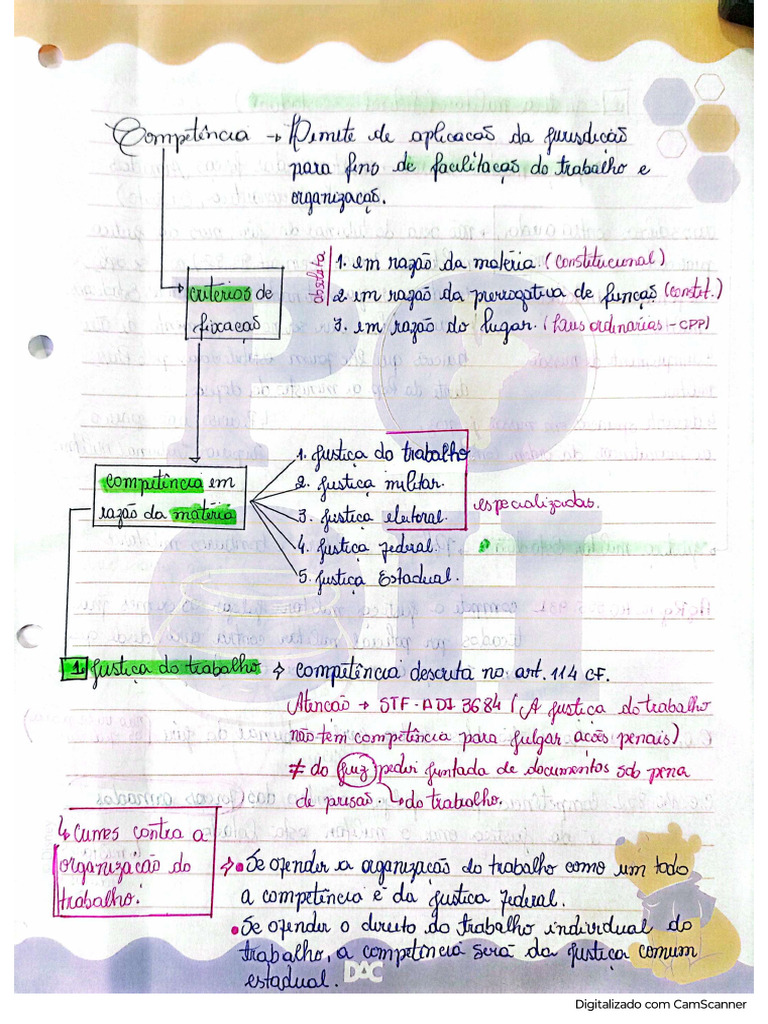 Competência → Limite de aplicação da jurisdição
para fins de facilitação do trabalho e
organização.
critérios de
fixação
absoluta
1. em razão da matéria. (constitucional)
2. em razão da prerrogativa de função (const.)
3. em razão do lugar. (Leis ordinárias - CPP)
competência em
razão da matéria
1. Justiça do trabalho
2. Justiça militar.
3. Justiça eleitoral.
4. Justiça Federal.
5. Justiça Estadual.
especializadas.
1. Justiça do trabalho → competência descrita no art. 114 CF.
Atenção → STF - ADI 3684 (A justiça do trabalho
não tem competência para julgar ações penais)
≠ do juiz pedir juntada de documentos sob pena
de prisão → do trabalho.
↳ Crimes contra a
organização do
trabalho.
→ • Se ofender a organização do trabalho como um todo
a competência é da justiça Federal.
• Se ofender o direito do trabalho individual do
trabalho, a competência será da justiça comum
estadual.
DAC
Digitalizado com CamScanner